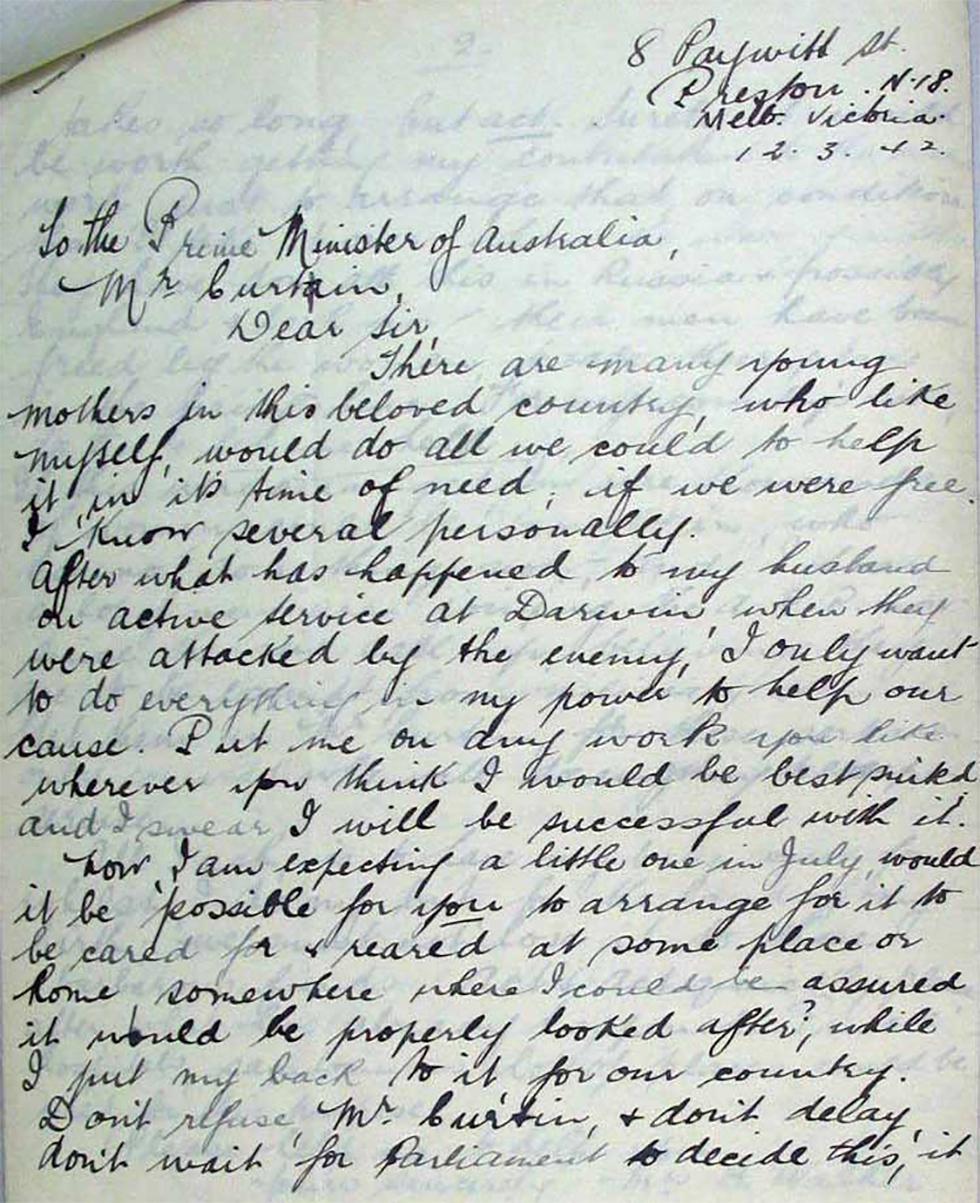 8 Paywitt St.
Preston. N.18.
Melb. Victoria.
12.3.42.
To the Prime Minister of Australia,
Mr Curtain,
Dear Sir,
There are many young
mothers in this beloved country, who like
myself, would do all we could to help
it, in it's time of need, if we were free.
I know several personally.
After what has happened, to my husband
on active service at Darwin, when they
were attacked by the enemy, I only want
to do everything in my power, to help our
cause. Put me on any work you like
wherever you think I would be best suited
and I swear I will be successful with it.
Now, I am expecting a little one in July, would
it be possible for you to arrange for it to
be cared for & reared at some place or
home somewhere where I could be assured
it would be properly looked after?, while
I put my back to it for our country.
Don't refuse, Mr Curtin, & don't delay,
don't wait for Parliament to decide this, it